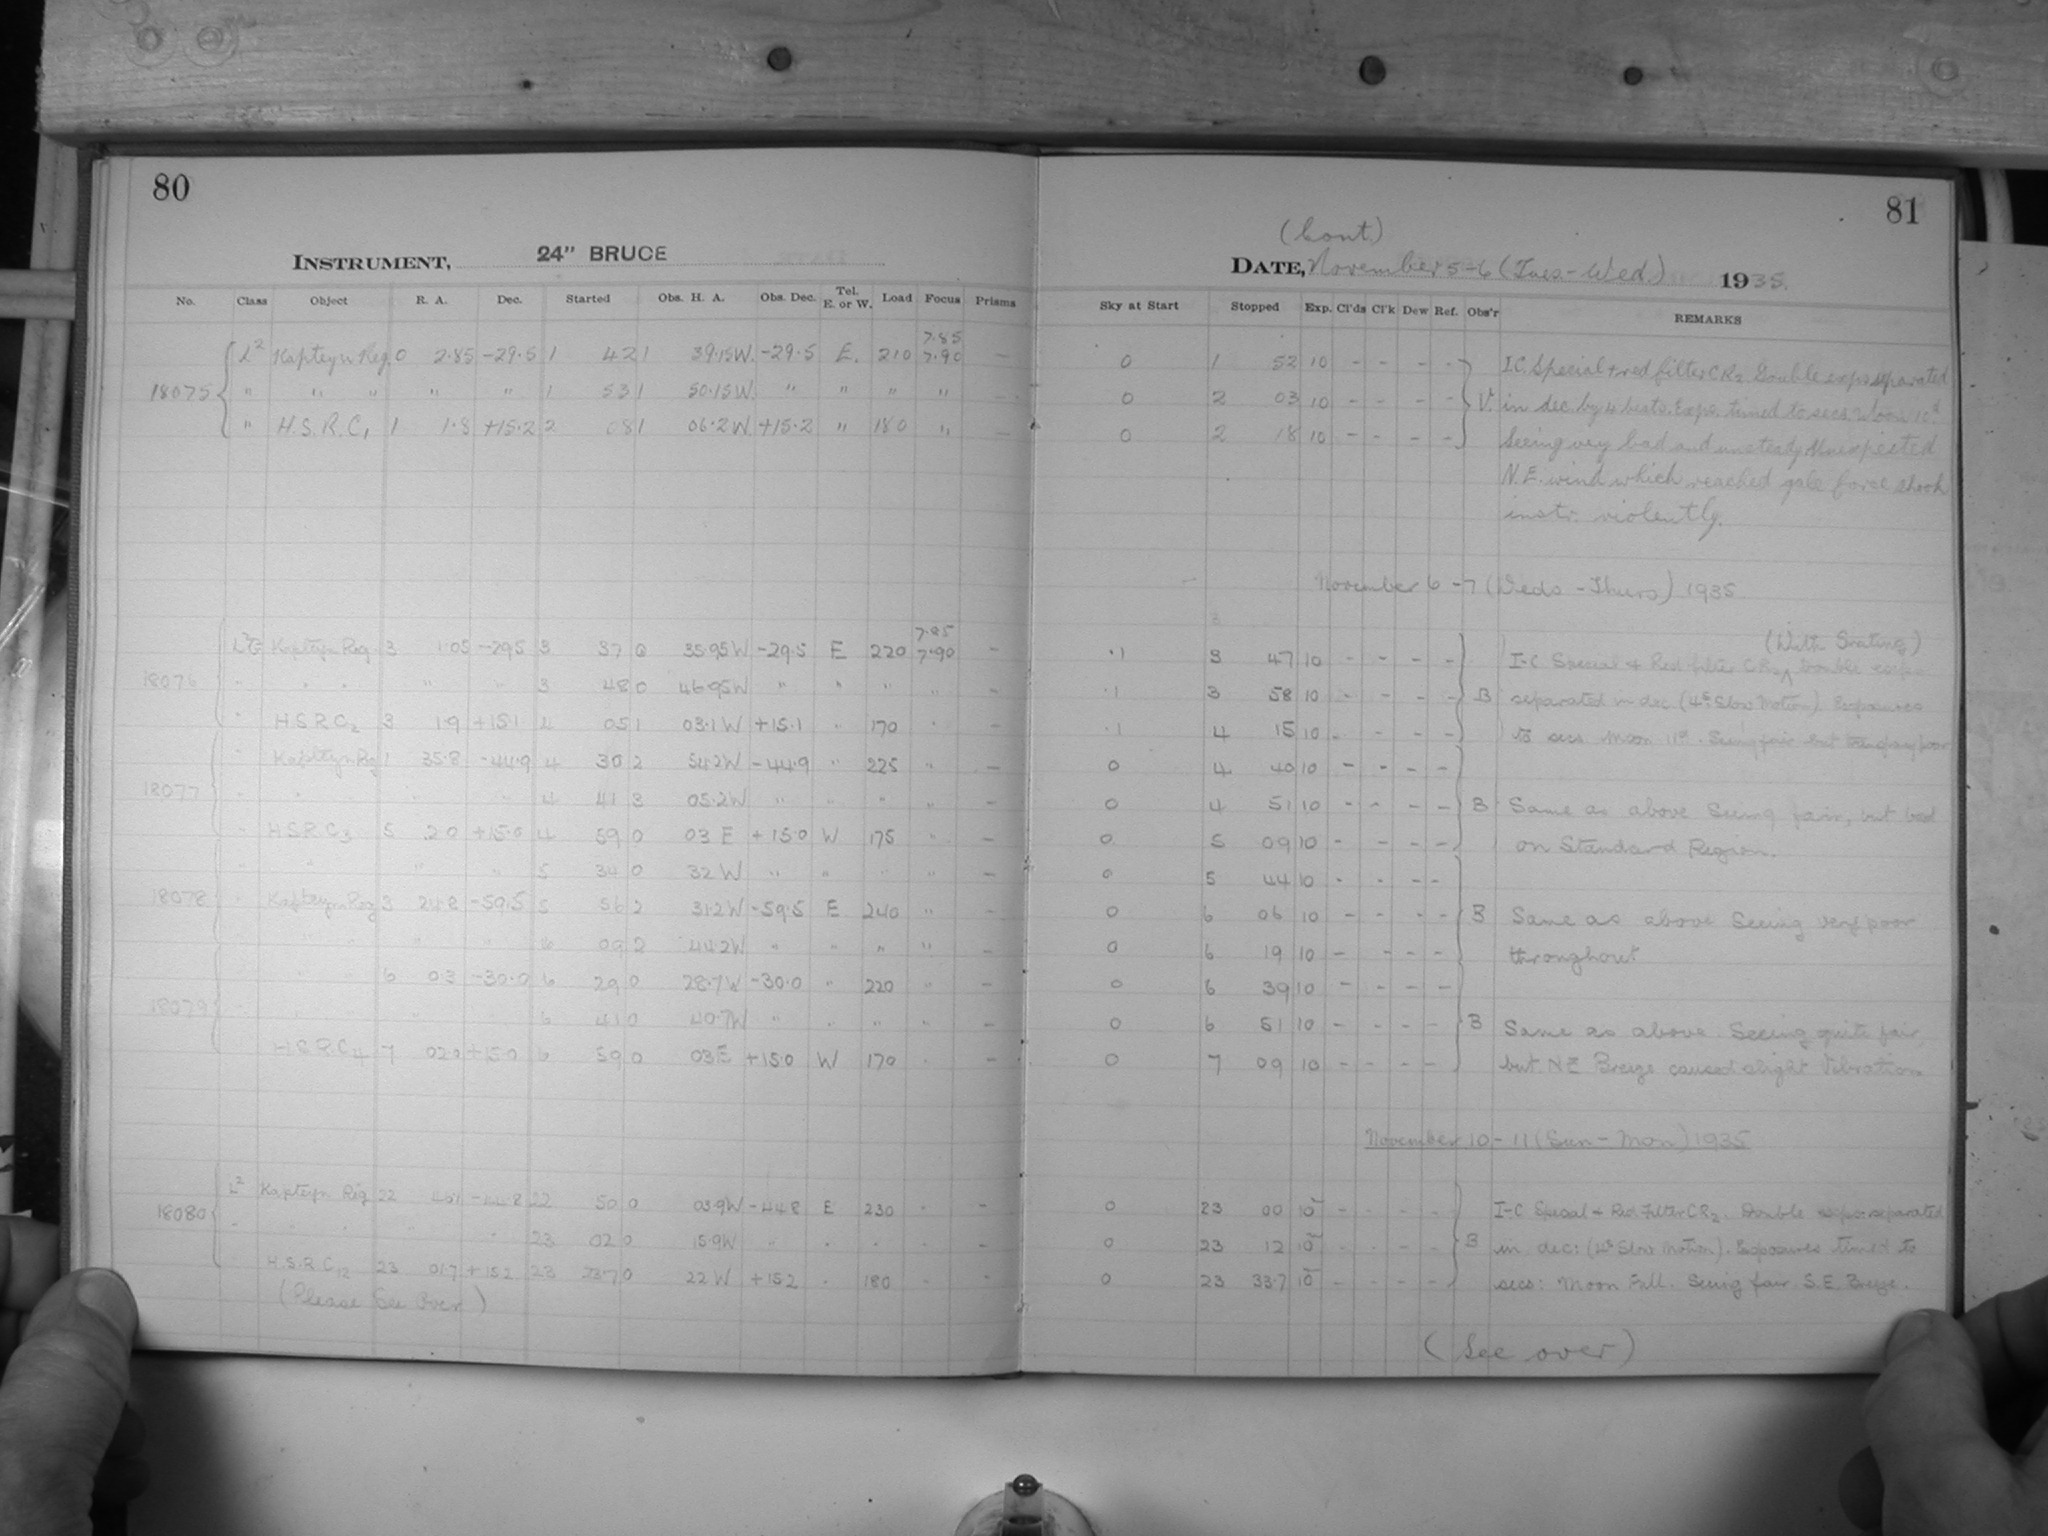 80
INSTRUMENT, 24" BRUCE
No. Class Object R. A. Dec. Started Obs. H. A. Obs. Dec. Tel. E. or W. Load Focus Prisms
7.85
L² Kapteyn Reg. 0 2.85 -29.5 1 42 1 39.15W. -29.5 E. 210 7.90 —
18075 " " " " " 1 53 1 50.15W " " " " —
" H.S.R.C₁ 1 1.8 +15.2 2 08 1 06.2W +15.2 " 180 " —
7.85
Kapteyn Reg 3 1.05 -29.5 3 37 0 35.95W -29.5 E 220 7.90 —
18076 " " " " " 3 48 0 46.95W " " " " —
" H.S.R.C₂ 3 1.9 +15.1 4 05 1 03.1W +15.1 " 170 " —
" Kapteyn Reg 1 35.8 -44.9 4 30 2 54.2W -44.9 " 225 " —
18077 " " " " " 4 41 3 05.2W " " " " —
" H.S.R.C₃ 5 2.0 +15.0 4 59 0 03 E +15.0 W 175 " —
" " " " 5 34 0 32 W " " " " —
18078 " Kapteyn Reg 3 24.8 -59.5 5 56 2 31.2W -59.5 E 240 " —
" " " " 6 09 2 44.2W " " " " —
" " 6 0.3 -30.0 6 29 0 28.7W -30.0 " 220 " —
18079 " " " " 6 41 0 40.7W " " " " —
H.S.R.C₄ 7 02.0 +15.0 6 59 0 03E +15.0 W 170 " —
L² Kapteyn Reg 22 -44.8 22 50 0 03.9W -44.8 E 230 " —
18080 " " " " 23 02 0 15.9W " " " " —
H.S.R.C₁₂ 23 01.7 +15.2 23 23.7 0 22 W +15.2 " 180 " —
(Please See Over)
81
(Cont.)
DATE, November 5-6 (Tues-Wed.) 1935.
Sky at Start Stopped Exp. Cl'ds Cl'k Dew Ref. Obs'r REMARKS
0 1 52 10 - - - - I.C. Special + red filter CR₂. Double expo separated
0 2 03 10 - - - - V. in dec. by 4 beats. Expo. timed to secs. Moon 10ᵈ.
0 2 18 10 - - - - Seeing very bad and unsteady. Unexpected
N.E. wind which reached gale force shook
instr. violently.
November 6-7 (Weds-Thurs) 1935
(With Grating)
.1 3 47 10 - - - - I-C Special + Red filter CR₂ Double expo
.1 3 58 10 - - - - B separated in dec (4ˢ Slow Motion). Exposures
.1 4 15 10 - - - - to secs Moon 11ᵈ. Seeing fair but
0 4 40 10 - - - -
0 4 51 10 - - - - B Same as above Seeing fair, but bad
0 5 09 10 - - - - on Standard Region.
0 5 44 10 - - - -
0 6 06 10 - - - - B Same as above Seeing very poor
0 6 19 10 - - - - throughout
0 6 39 10 - - - -
0 6 51 10 - - - - B Same as above. Seeing quite fair
0 7 09 10 - - - - but NE Breeze caused slight Vibration
November 10-11 (Sun-Mon) 1935
0 23 00 10 - - - - I-C Special + Red Filter CR₂. Double expo separated
0 23 12 10 - - - - B in dec: (4ˢ Slow Motion). Exposures timed to
0 23 33.7 10 - - - - secs: Moon Full. Seeing fair. S.E. Breeze.
(See over)